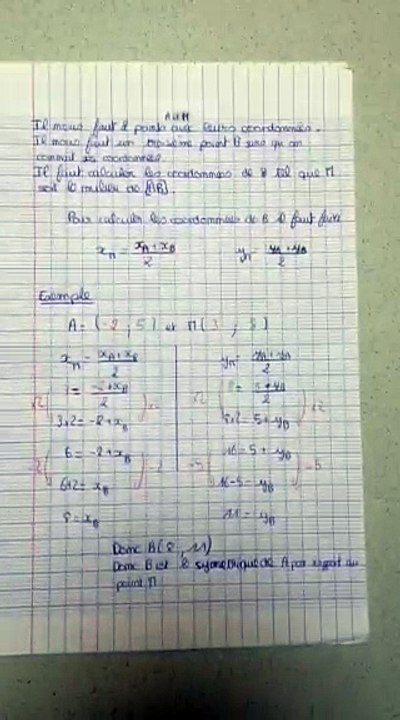 A et M
Il nous faut 2 points avec leurs coordonnées.
Il nous faut un troisième point B sans qu'on
connait ses coordonnées.
Il faut calculer les coordonnées de B tel que M
soit le milieu de [AB].
Pour calculer les coordonnées de B il faut faire
x_M = (x_A + x_B)/2 y_M = (y_A + y_B)/2
Exemple
A = (-2 ; 5) et M (3 ; 8)
x_M = (x_A + x_B)/2 y_M = (y_A + y_B)/2
3 = (-2 + x_B)/2 8 = (5 + y_B)/2
3×2 = -2 + x_B 8×2 = 5 + y_B
6 = -2 + x_B 16 = 5 + y_B
6+2 = x_B 16-5 = y_B
8 = x_B 11 = y_B
Donc B (8 ; 11)
Donc B est le symetrique de A par rapport au
point M